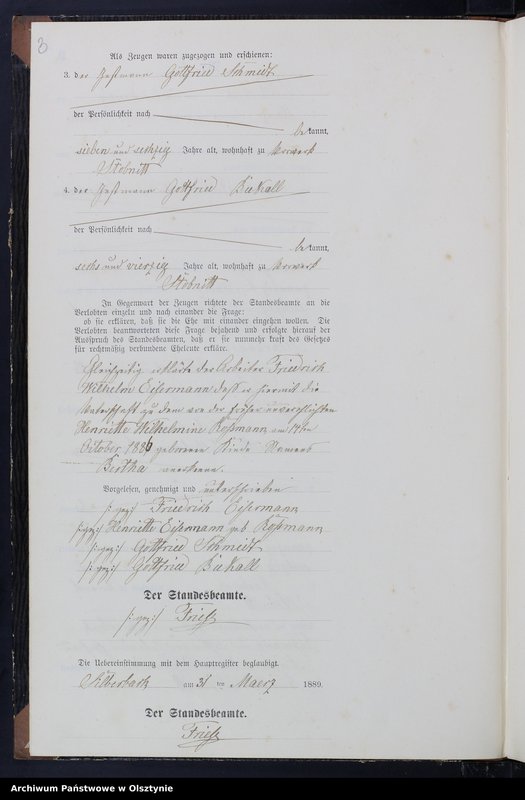 8
Als Zeugen waren zugezogen und erschienen:
3. der Gottfried Schmidt
der Persönlichkeit nach
bekannt,
sieben und sechzig Jahre alt, wohnhaft zu Vorwerk
Stobnitt
4. der Gottfried Bükall
der Persönlichkeit nach
bekannt,
sechs und vierzig Jahre alt, wohnhaft zu Vorwerk
Stobnitt
In Gegenwart der Zeugen richtete der Standesbeamte an die
Verlobten einzeln und nach einander die Frage:
ob sie erklären, daß sie die Ehe mit einander eingehen wollen. Die
Verlobten beantworteten diese Frage bejahend und erfolgte hierauf der
Ausspruch des Standesbeamten, daß er sie nunmehr kraft des Gesetzes
für rechtmäßig verbundene Eheleute erkläre.
Gleichzeitig erklärte der Arbeiter Friedrich
Wilhelm Eisermann daß er hiermit die
Vaterschaft zu dem von der früher unverehelichten
Henriette Wilhelmine Roßmann am 17ten
October 1886 geborenen Kinde Namens
Bertha anerkenne.
Vorgelesen, genehmigt und unterschrieben
(: gez :) Friedrich Eisermann
(: gez :) Henriette Eisermann geb Roßmann
(: gez :) Gottfried Schmidt
(: gez :) Gottfried Bükall
Der Standesbeamte.
(: gez :) Friese
Die Uebereinstimmung mit dem Hauptregister beglaubigt.
Silberbach am 31 ten Maerz 1889.
Der Standesbeamte.
Friese
Archiwum Państwowe w Olsztynie